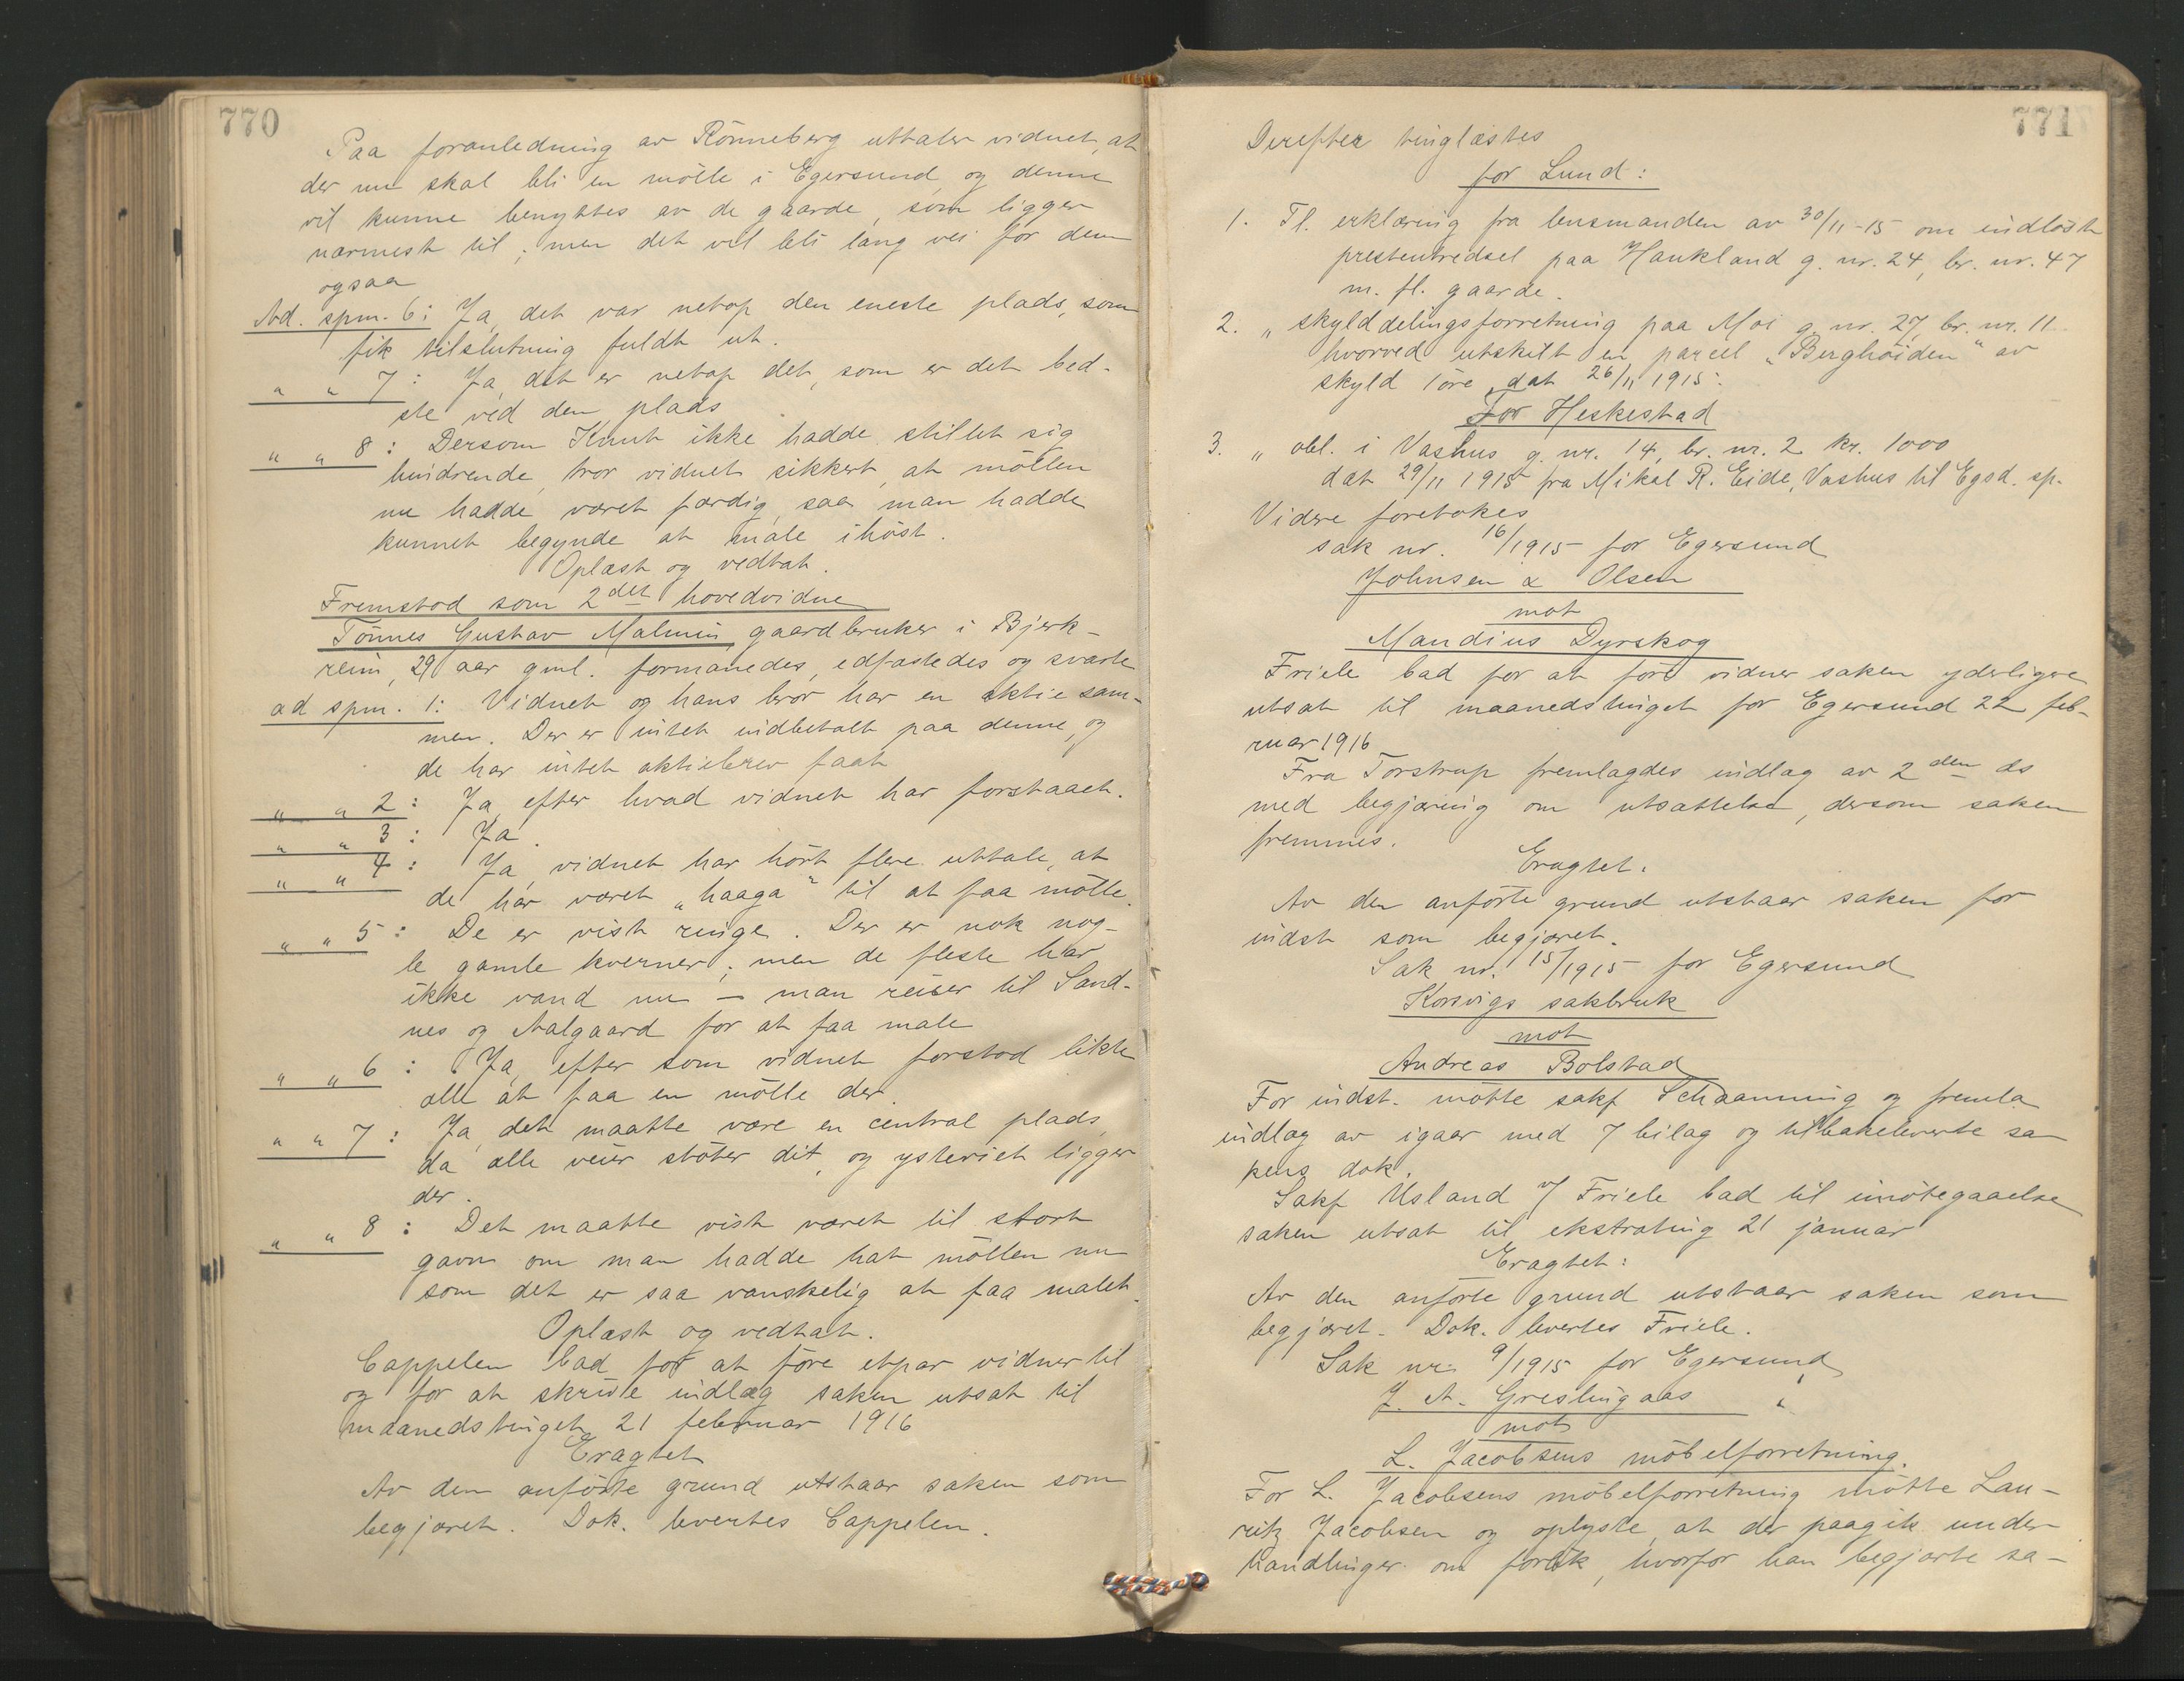 770
Paa foranledning av Rönneberg uttaler vidnet, at
der nu skal bli en mölle i Egersund, og denne
vil kunne benyttes av de gaarde, som ligger
nærmest til; men det vil bli lang vei for dem
ogsaa
Ad. spm. 6: Ja, det var netop den eneste plads, som
fik tilslutning fuldt ut.
" " 7: Ja, det er netop det, som er det bed-
ste ved den plads
" " 8: Dersom Knut ikke hadde stillet sig
hindrende, tror vidnet sikkert, at möllen
nu hadde været færdig, saa man hadde
kunnet begynde at male ihöst.
Oplæst og vedtat.
Fremstod som 2det hovedvidne
Tönnes Gustav Malmin, gaardbruker i Bjerk-
reim, 29 aar gml. formanedes, edfæstedes og svarte
ad spm. 1: Vidnet og hans bror har en aktie sam-
men. Der er intet indbetalt paa denne, og
de har intet aktiebrev faat
" " 2: Ja, efter hvad vidnet har forstaaet.
" " 3: Ja.
" " 4: Ja, vidnet har hört flere uttale, at
de har været „haaga" til at faa mölle.
" " 5: De er vist ringe. Der er nok nog-
le gamle kverner; men de fleste har
ikke vand nu – man reiser til Sand-
nes og Aalgaard for at faa male
" " 6: Ja, efter som vidnet forstod likte
alle at faa en mölle der.
" " 7: Ja, det maatte være en central plads,
da alle veier stöter dit, og ysteriet ligger
der.
" " 8: Det maatte vist været til stort
gavn om man hadde hat möllen nu
som det er saa vanskelig at faa malet.
Oplæst og vedtat.
Cappelen bad for at före etpar vidner til
og for at skrive indlæg saken utsat til
maanedstinget 21 februar 1916
Eragtet
Av den anförte grund utstaar saken som
begjæret. Dok. levertes Cappelen.
771
Derefter tinglæstes
for Lund:
1. Tl. erklæring fra lensmanden av 30/11-15 om indlöst
prestentredsel paa Haukland g. nr. 24, br. nr. 47
m. fl. gaarde.
2. " skylddelingsforretning paa Moi g. nr. 27, br. nr. 11
hvorved utskilt en parcel „Berghöiden" av
skyld 1 öre, dat 26/11 1915.
For Heskestad
3. " obl. i Vashus g. nr. 14, br. nr. 2 kr. 1000
dat 29/11 1915 fra Mikal R. Eide, Vashus til Egsd. sp.
Videre foretokes
sak nr. 16/1915 for Egersund
Johnsen & Olsen
mot
Mandius Dyrskog
Friele bad for at före vidner saken yderligere
utsat til maanedstinget for Egersund 22 feb-
ruar 1916
Fra Torstrup fremlagdes indlæg av 2den ds
med begjæring om utsættelse, dersom saken
fremmes.
Eragtet.
Av den anförte grund utstaar saken for
indst som begjæret.
Sak nr. 15/1915 for Egersund
Korsvigs sakbruk
mot
Andreas Bolstad
For indst. mötte sakf Schaanning og fremla
indlæg av igaar med 7 bilag og tilbakeleverte sa
kens dok.
Sakf Usland v/ Friele bad til imötegaaelse
saken utsat til ekstrating 21 januar
Eragtet:
Av den anförte grund utstaar saken som
begjæret. Dok. levertes Friele.
Sak nr. 9/1915 for Egersund
J. A. Grestingaas
mot
L. Jacobsens möbelforretning.
For L. Jacobsens möbelforretning mötte Lau-
ritz Jacobsen og oplyste, at der paagik under-
handlinger om forlik, hvorfor han begjærte sa-